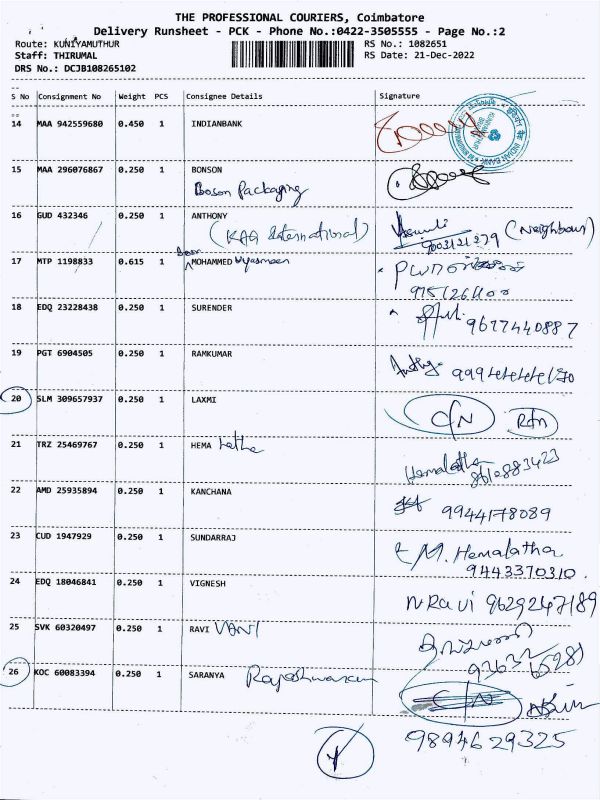 THE PROFESSIONAL COURIERS, Coimbatore
Delivery Runsheet - PCK - Phone No.:0422-3505555 - Page No.:2
Route: KUNIYAMUTHUR RS No.: 1082651
Staff: THIRUMAL RS Date: 21-Dec-2022
DRS No.: DCJB108265102
S No Consignment No Weight PCS Consignee Details Signature
14 MAA 942559680 0.450 1 INDIANBANK
15 MAA 296076867 0.250 1 BONSON
Boson Packaging
16 GUD 432346 0.250 1 ANTHONY
(KAG International) (Neighbour)
17 MTP 1198833 0.615 1 MOHAMMED
18 EDQ 23228438 0.250 1 SURENDER
9677440887
19 PGT 6904505 0.250 1 RAMKUMAR
20 SLM 309657937 0.250 1 LAXMI C/N Rtn
21 TRZ 25469767 0.250 1 HEMA Latha
Hemalatha
22 AMD 25935894 0.250 1 KANCHANA
9944178089
23 CUD 1947929 0.250 1 SUNDARRAJ M. Hemalatha
9443370310
24 EDQ 18046841 0.250 1 VIGNESH
N Ravi 9629247189
25 SVK 60320497 0.250 1 RAVI VANI
26 KOC 60083394 0.250 1 SARANYA Rajeshwaran
C/N
9894629325